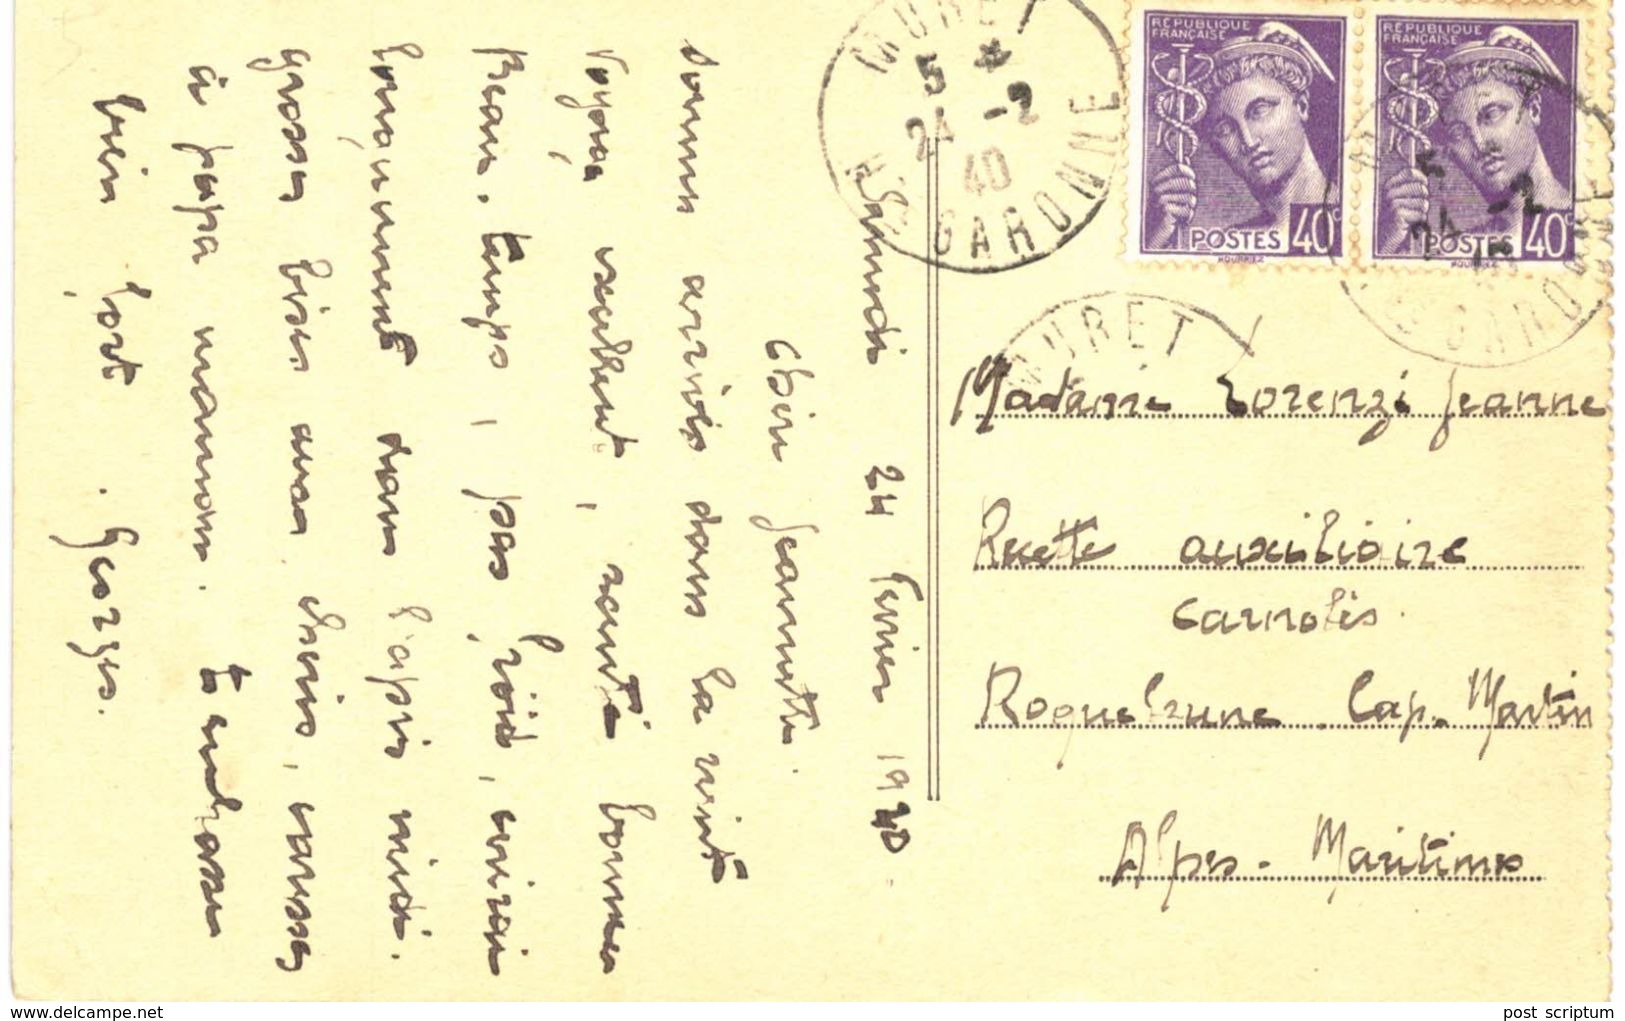 MURET
5 *
24 -2
40
HTE GARONNE
REPUBLIQUE
FRANÇAISE
POSTES 40c
REPUBLIQUE
FRANÇAISE
POSTES 40c
24 -2
GARONNE
MURET
Samedi 24 Fevrier 1940
Chère Jeannette.
Sommes arrivés dans la nuit
Voyage excellent, santé bonne
Beau temps, pas froid, écrirai
longuement dans l'après midi.
grosses bises aux chéris, caresses
à papa maman. t'embrasse
bien fort. Georges.
Madame Lorenzi Jeanne
Recette auxiliaire
Carnolès.
Roquebrune Cap. Martin
Alpes-Maritimes
delcampe.net
post scriptum